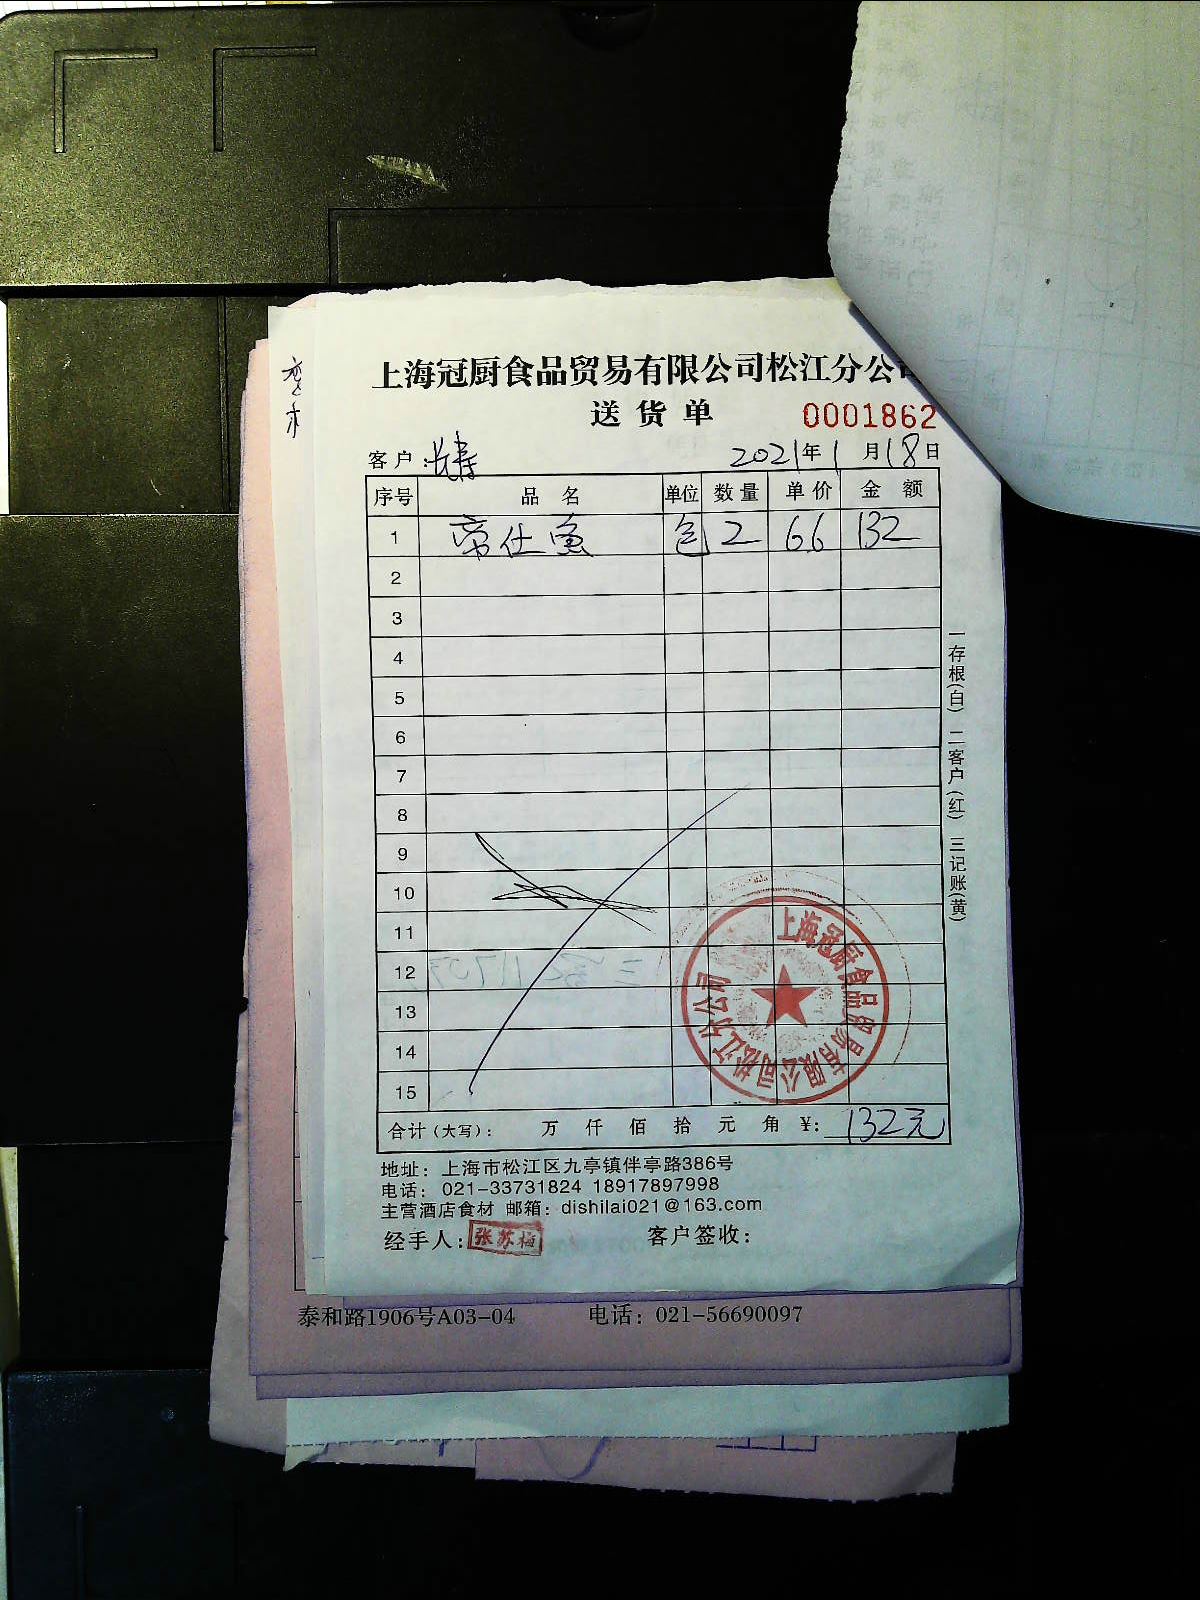 上海冠厨食品贸易有限公司松江分公司
送货单 0001862
客户: 长寿 2021年1月18日
序号 品名 单位 数量 单价 金额
1 帝仕鱼 包 2 66 132
2
3
4
5
6
7
8
9
10
11
12
13
14
15
合计(大写): 万 仟 佰 拾 元 角 ¥: 132元
一存根(白) 二客户(红) 三记账(黄)
上海冠厨食品贸易有限公司松江分公司
地址: 上海市松江区九亭镇伴亭路386号
电话: 021-33731824 18917897998
主营酒店食材 邮箱: dishilai021@163.com
经手人: 客户签收:
泰和路1906号A03-04 电话: 021-56690097